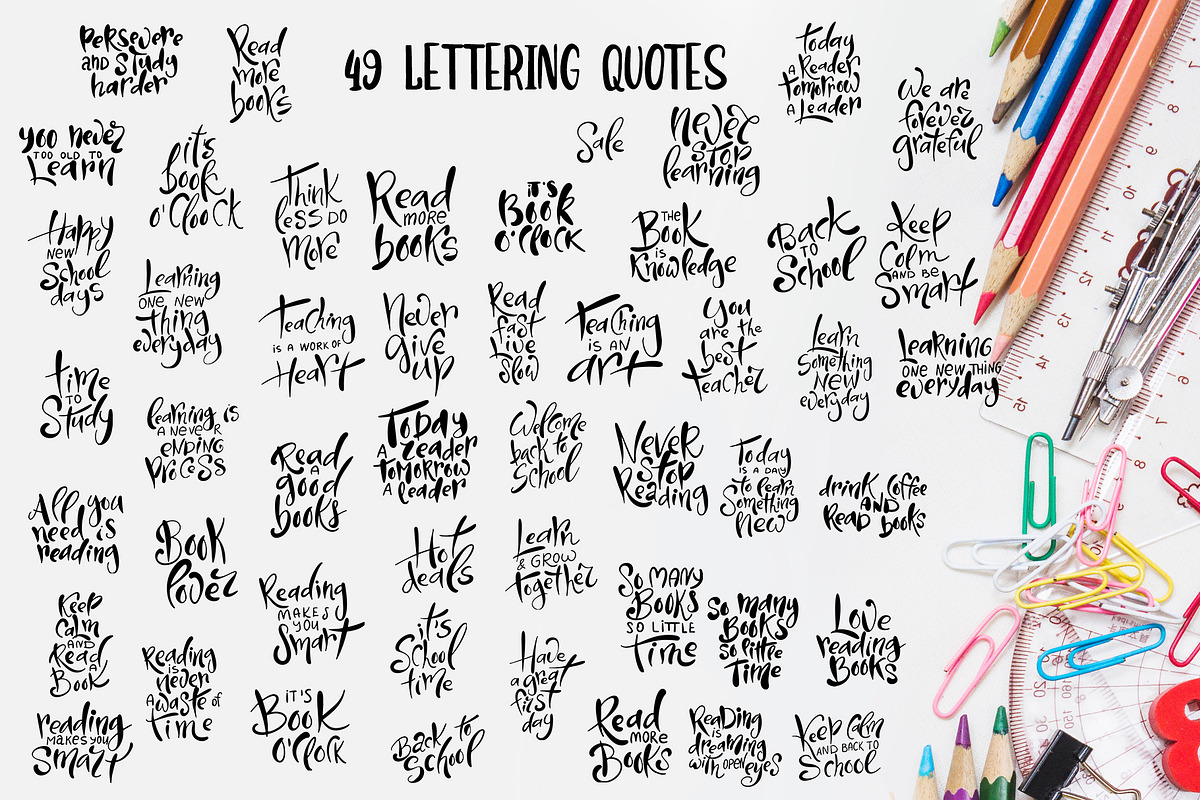 Persevere
and Study
harder
Read
more
books
49 LETTERING QUOTES
Today
A Reader
tomorrow
A Leader
We are
forever
grateful
you never
TOO OLD TO
Learn
it's
book
o'Clock
Think
less DO
more
Read
MORE
books
it's
Book
o'Clock
Sale
Never
stop
learning
THE
Book
is
Knowledge
Back
TO
School
Keep
Calm
AND BE
Smart
Happy
NEW
School
days
Learning
ONE NEW
thing
everyday
Teaching
IS A WORK OF
Heart
Never
give
up
Read
fast
Live
slow
Teaching
IS AN
art
You
are the
best
teacher
Learn
Something
NEW
everyday
Learning
ONE NEW THING
everyday
time
TO
Study
learning is
A NEVER
ENDING
PROCESS
Read
A
good
books
Today
A reader
tomorrow
A leader
Welcome
back to
School
Never
Stop
Reading
Today
IS A DAY
to learn
Something
New
drink Coffee
AND
Read Books
All you
need is
reading
Book
lover
Reading
MAKES
YOU
Smart
Hot
deals
Learn
& GROW
together
So MANY
Books
SO LITTLE
Time
So many
Books
So little
Time
Love
reading
Books
Keep
Calm
AND
Read
A
Book
Reading
is
never
A waste of
time
it's
School
time
Have
a great
first
day
reading
MAKES YOU
Smart
it's
Book
o'Clock
Back to
School
Read
MORE
Books
Reading
is
dreaming
with OPEN eyes
Keep Calm
AND BACK TO
School